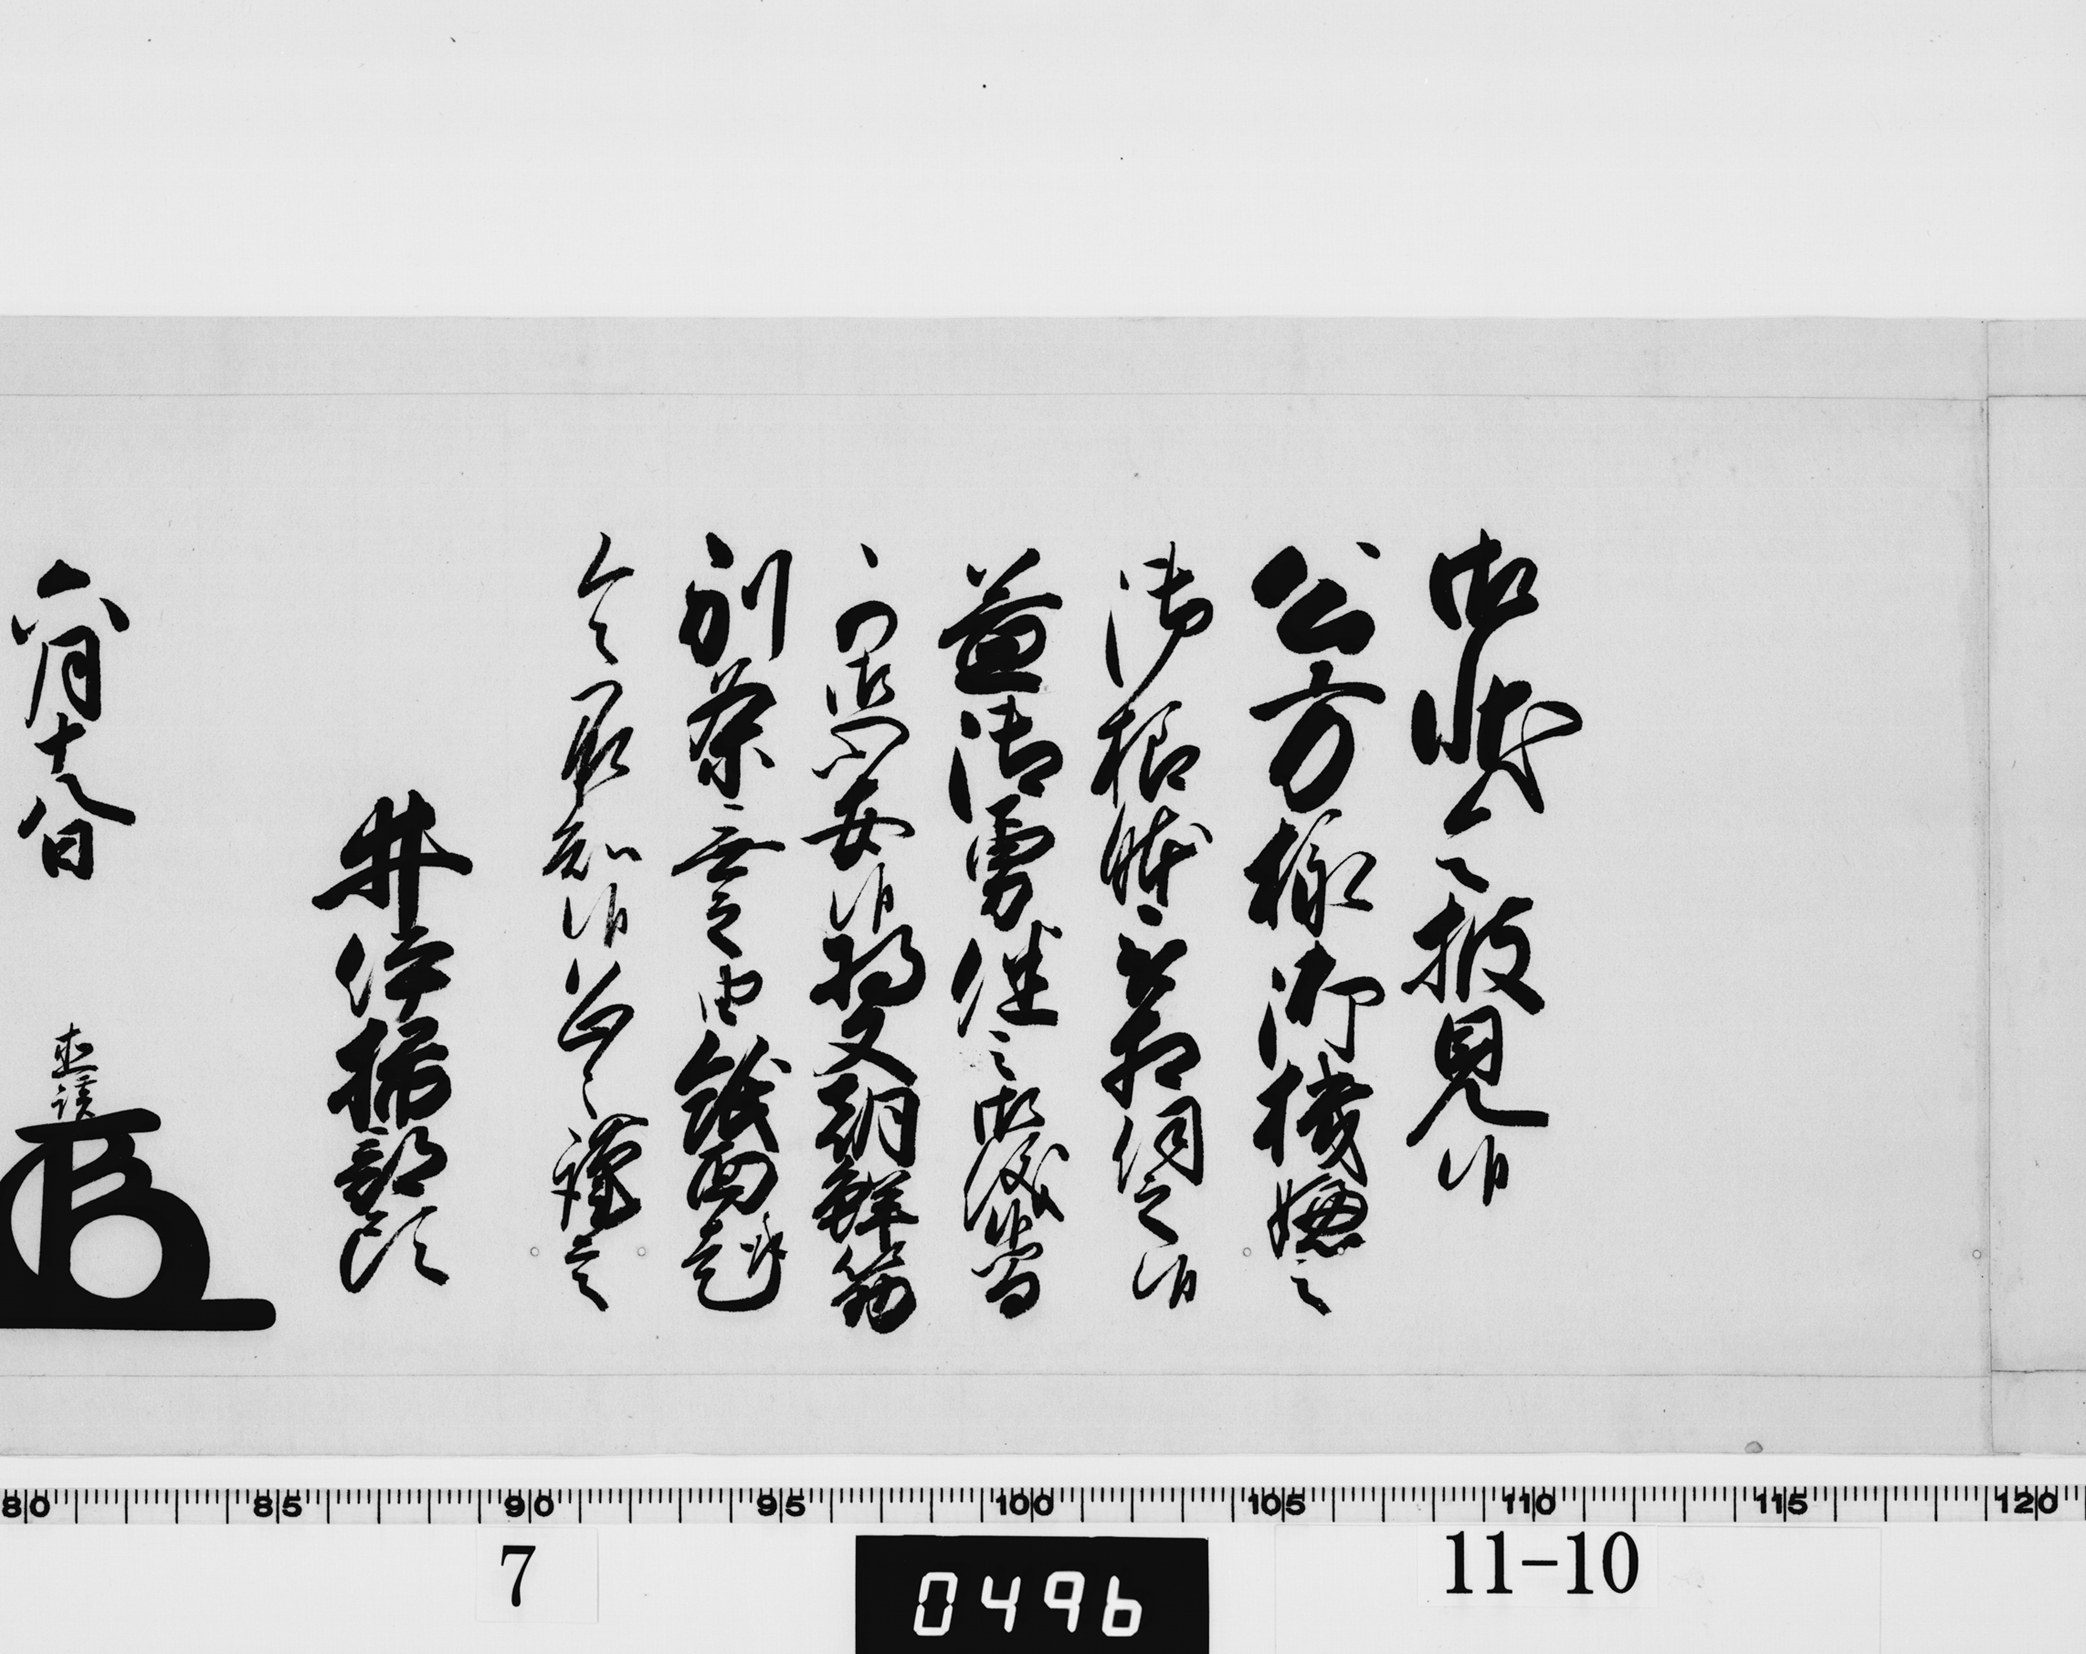 御状令披見候
公方様御機嫌之
御様躰被相伺之候
益御勇健之御儀候間
可御心安候将又朝鮮筋
別条無之由紙面趣
令承知候恐々謹言
井伊掃部頭
六月十八日 直該
80 85 90 95 100 105 110 115 120
7
0496
11-10